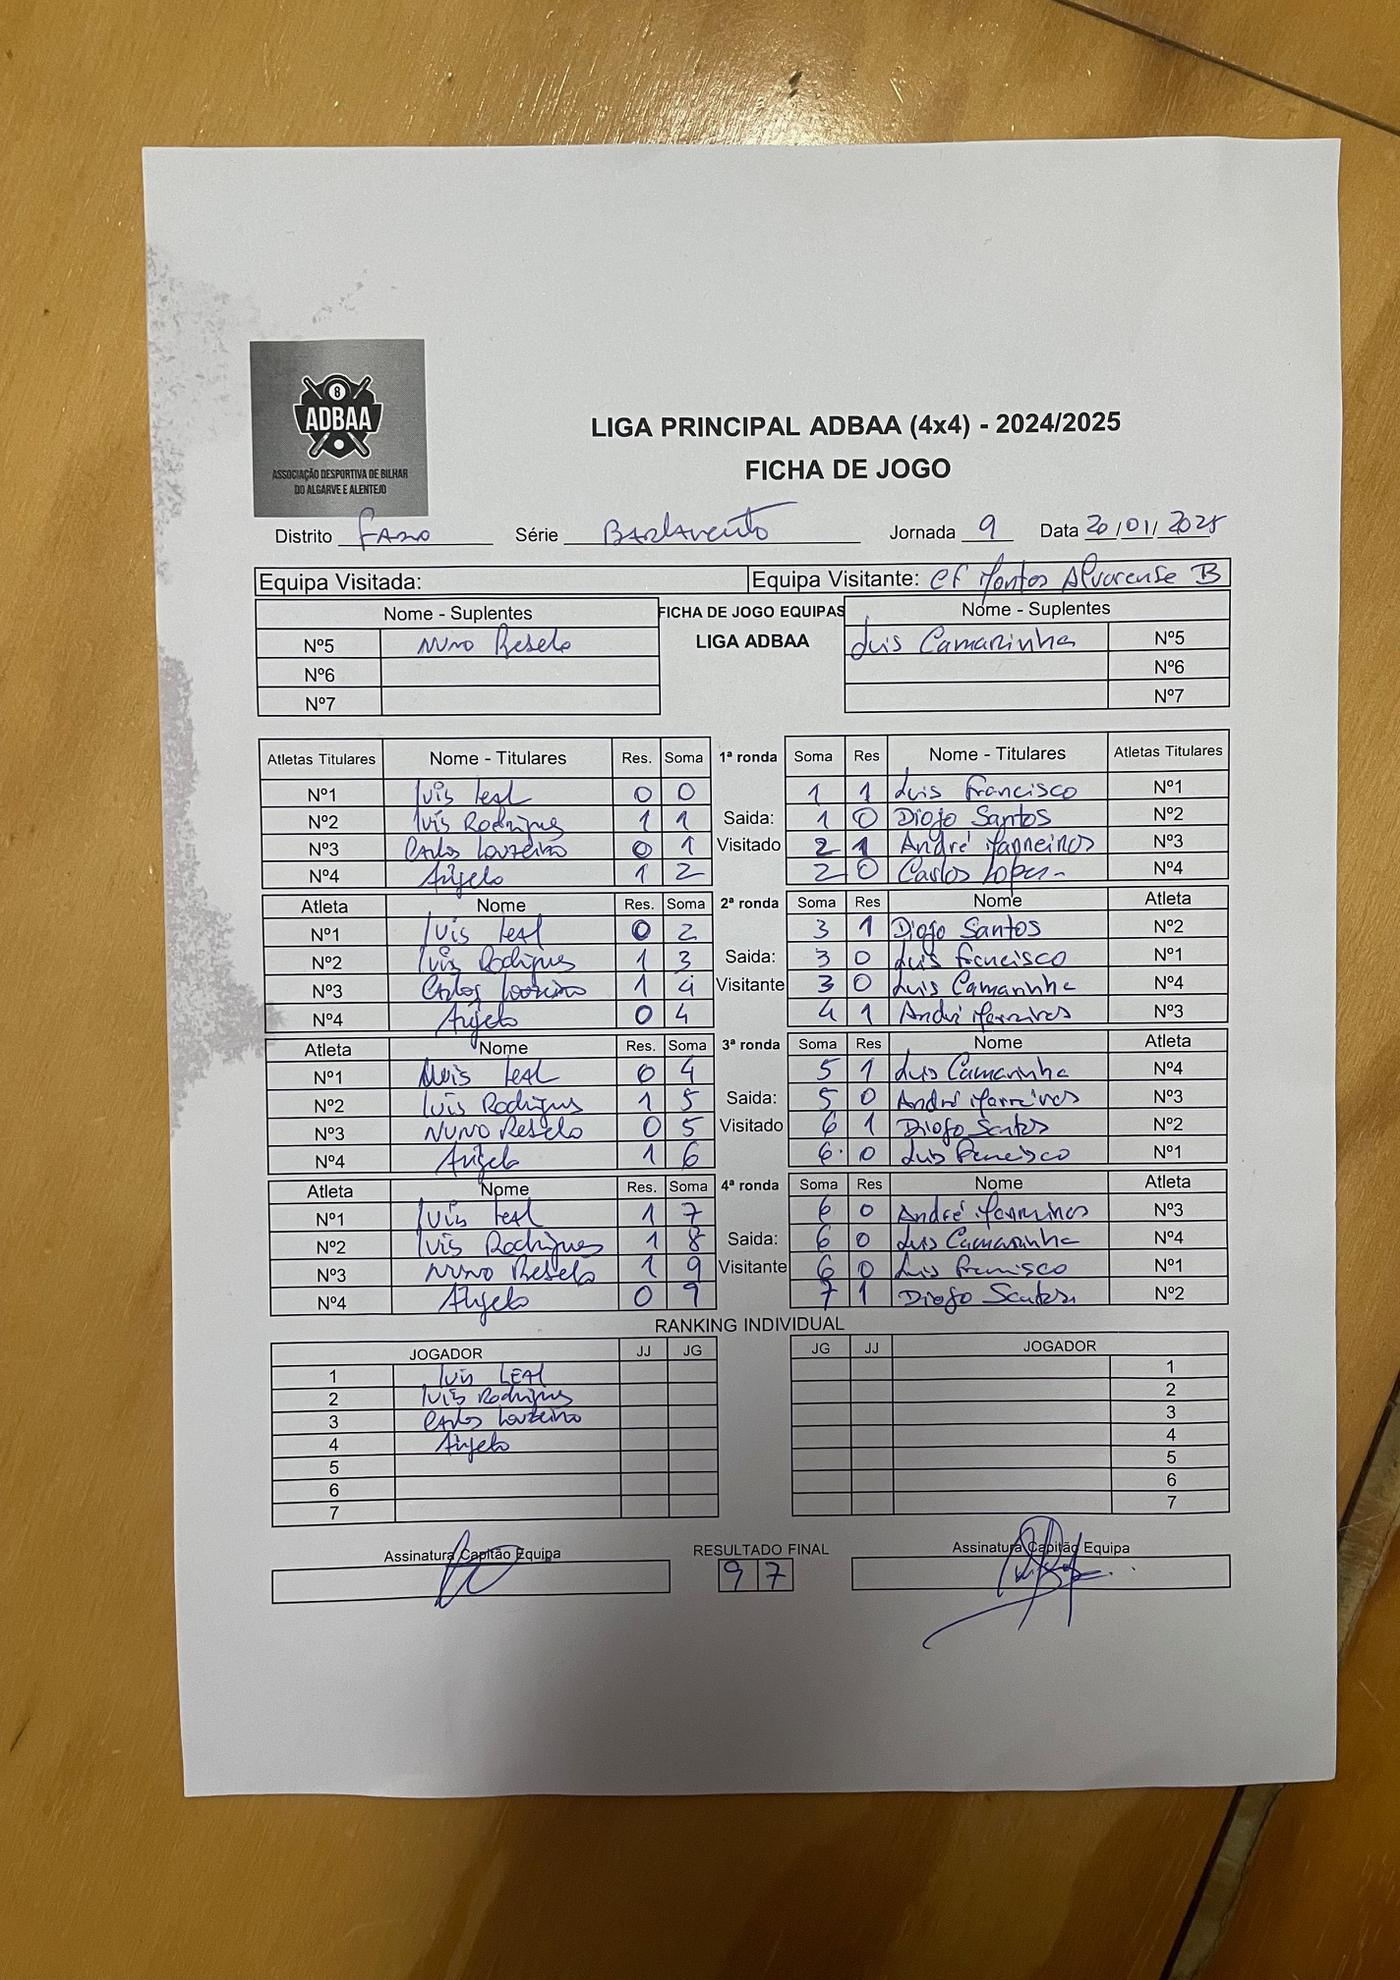 8
ADBAA
ASSOCIAÇÃO DESPORTIVA DE BILHAR
DO ALGARVE E ALENTEJO
LIGA PRINCIPAL ADBAA (4x4) - 2024/2025
FICHA DE JOGO
Distrito Faro Série Barlavento Jornada 9 Data 20/01/2025
Equipa Visitada: Equipa Visitante: CF Montes Alvorense B
Nome - Suplentes FICHA DE JOGO EQUIPAS Nome - Suplentes
Nº5 Nuno Reselo LIGA ADBAA Luis Camarinha Nº5
Nº6 Nº6
Nº7 Nº7
Atletas Titulares Nome - Titulares Res. Soma 1ª ronda Soma Res Nome - Titulares Atletas Titulares
Nº1 Luís Leal 0 0 1 1 Luis Francisco Nº1
Nº2 Luís Rodrigues 1 1 Saida: 1 0 Diogo Santos Nº2
Nº3 Carlos Loureiro 0 1 Visitado 2 1 André Marreiros Nº3
Nº4 Angelo 1 2 2 0 Carlos Lopes Nº4
Atleta Nome Res. Soma 2ª ronda Soma Res Nome Atleta
Nº1 Luís Leal 0 2 3 1 Diogo Santos Nº2
Nº2 Luís Rodrigues 1 3 Saida: 3 0 Luis Francisco Nº1
Nº3 Carlos Loureiro 1 4 Visitante 3 0 Luis Camarinha Nº4
Nº4 Angelo 0 4 4 1 André Marreiros Nº3
Atleta Nome Res. Soma 3ª ronda Soma Res Nome Atleta
Nº1 Luis Leal 0 4 5 1 Luis Camarinha Nº4
Nº2 Luís Rodrigues 1 5 Saida: 5 0 André Marreiros Nº3
Nº3 Nuno Reselo 0 5 Visitado 6 1 Diogo Santos Nº2
Nº4 Angelo 1 6 6 0 Luis Francisco Nº1
Atleta Nome Res. Soma 4ª ronda Soma Res Nome Atleta
Nº1 Luís Leal 1 7 6 0 André Marreiros Nº3
Nº2 Luís Rodrigues 1 8 Saida: 6 0 Luis Camarinha Nº4
Nº3 Nuno Reselo 1 9 Visitante 6 0 Luis Francisco Nº1
Nº4 Angelo 0 9 7 1 Diogo Santos Nº2
RANKING INDIVIDUAL
JOGADOR JJ JG JG JJ JOGADOR
1 Luís LEAL 1
2 Luís Rodrigues 2
3 Carlos Loureiro 3
4 Angelo 4
5 5
6 6
7 7
Assinatura Capitão Equipa RESULTADO FINAL Assinatura Capitão Equipa
9 7